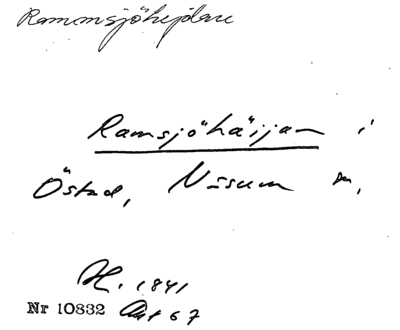 Rammsjöhejdare
Ramsjöhäijan i
Östad, Nösum sn,
H. 1841
Nr 10832 Ant 67